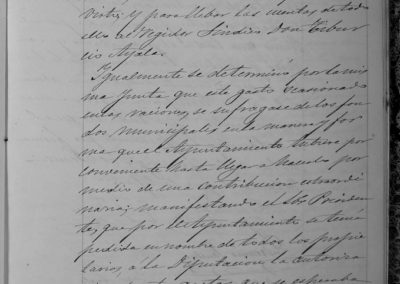 vista; y para llebar las cuentas de todo
ello al Regidor Sindico Don Tibur
cio Ayala.
Igualmente se determinó por la mis
ma Junta que este gasto ocasionado
en las raciones, se sufragase de los fon
dos municipales en la manera y for
ma que el Ayuntamiento tubiese por
conveniente hasta llegar a hacerlo por
medio de una contribucion extraordi
naria; manifestando el Sor Presiden
te, que por el Ayuntamiento se tenia
pedida en nombre de todos los propie
tarios, á la Diputacion la autoriza
gastos que se esperaba